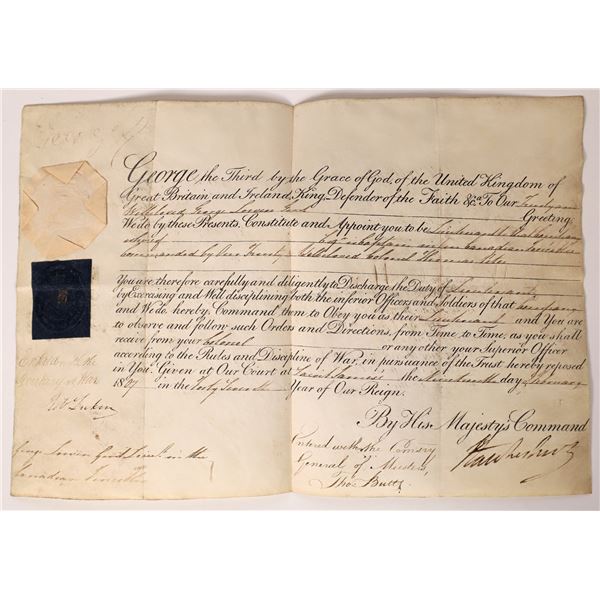 George R
George the Third by the Grace of God, of the United Kingdom of
Great Britain and Ireland King, Defender of the Faith &ca. To Our Trusty and
Wellbeloved George Greeting
We do by these Presents, Constitute and Appoint you to be Lieutenant
Captain in our Canadian
commanded by Our Trusty Wellbeloved Colonel Thomas
You are therefore carefully and diligently to Discharge the Duty of Lieutenant
by Exercising and Well disciplining both the inferior Officers and Soldiers of that Company
and We do hereby Command them to Obey you as their Lieutenant and You are
to observe and follow such Orders and Directions, from Time to Time, as you shall
receive from your Colonel or any other your Superior Officer
according to the Rules and Discipline of War, in pursuance of the Trust hereby reposed
in You. Given at Our Court at Saint James's the day
18 in the Forty Seventh Year of Our Reign.
By His Majesty's Command
Entered with the
Secretary at War
Entered with the Comsry
General of Musters
Thos Butts
George Lieut. in the
Canadian